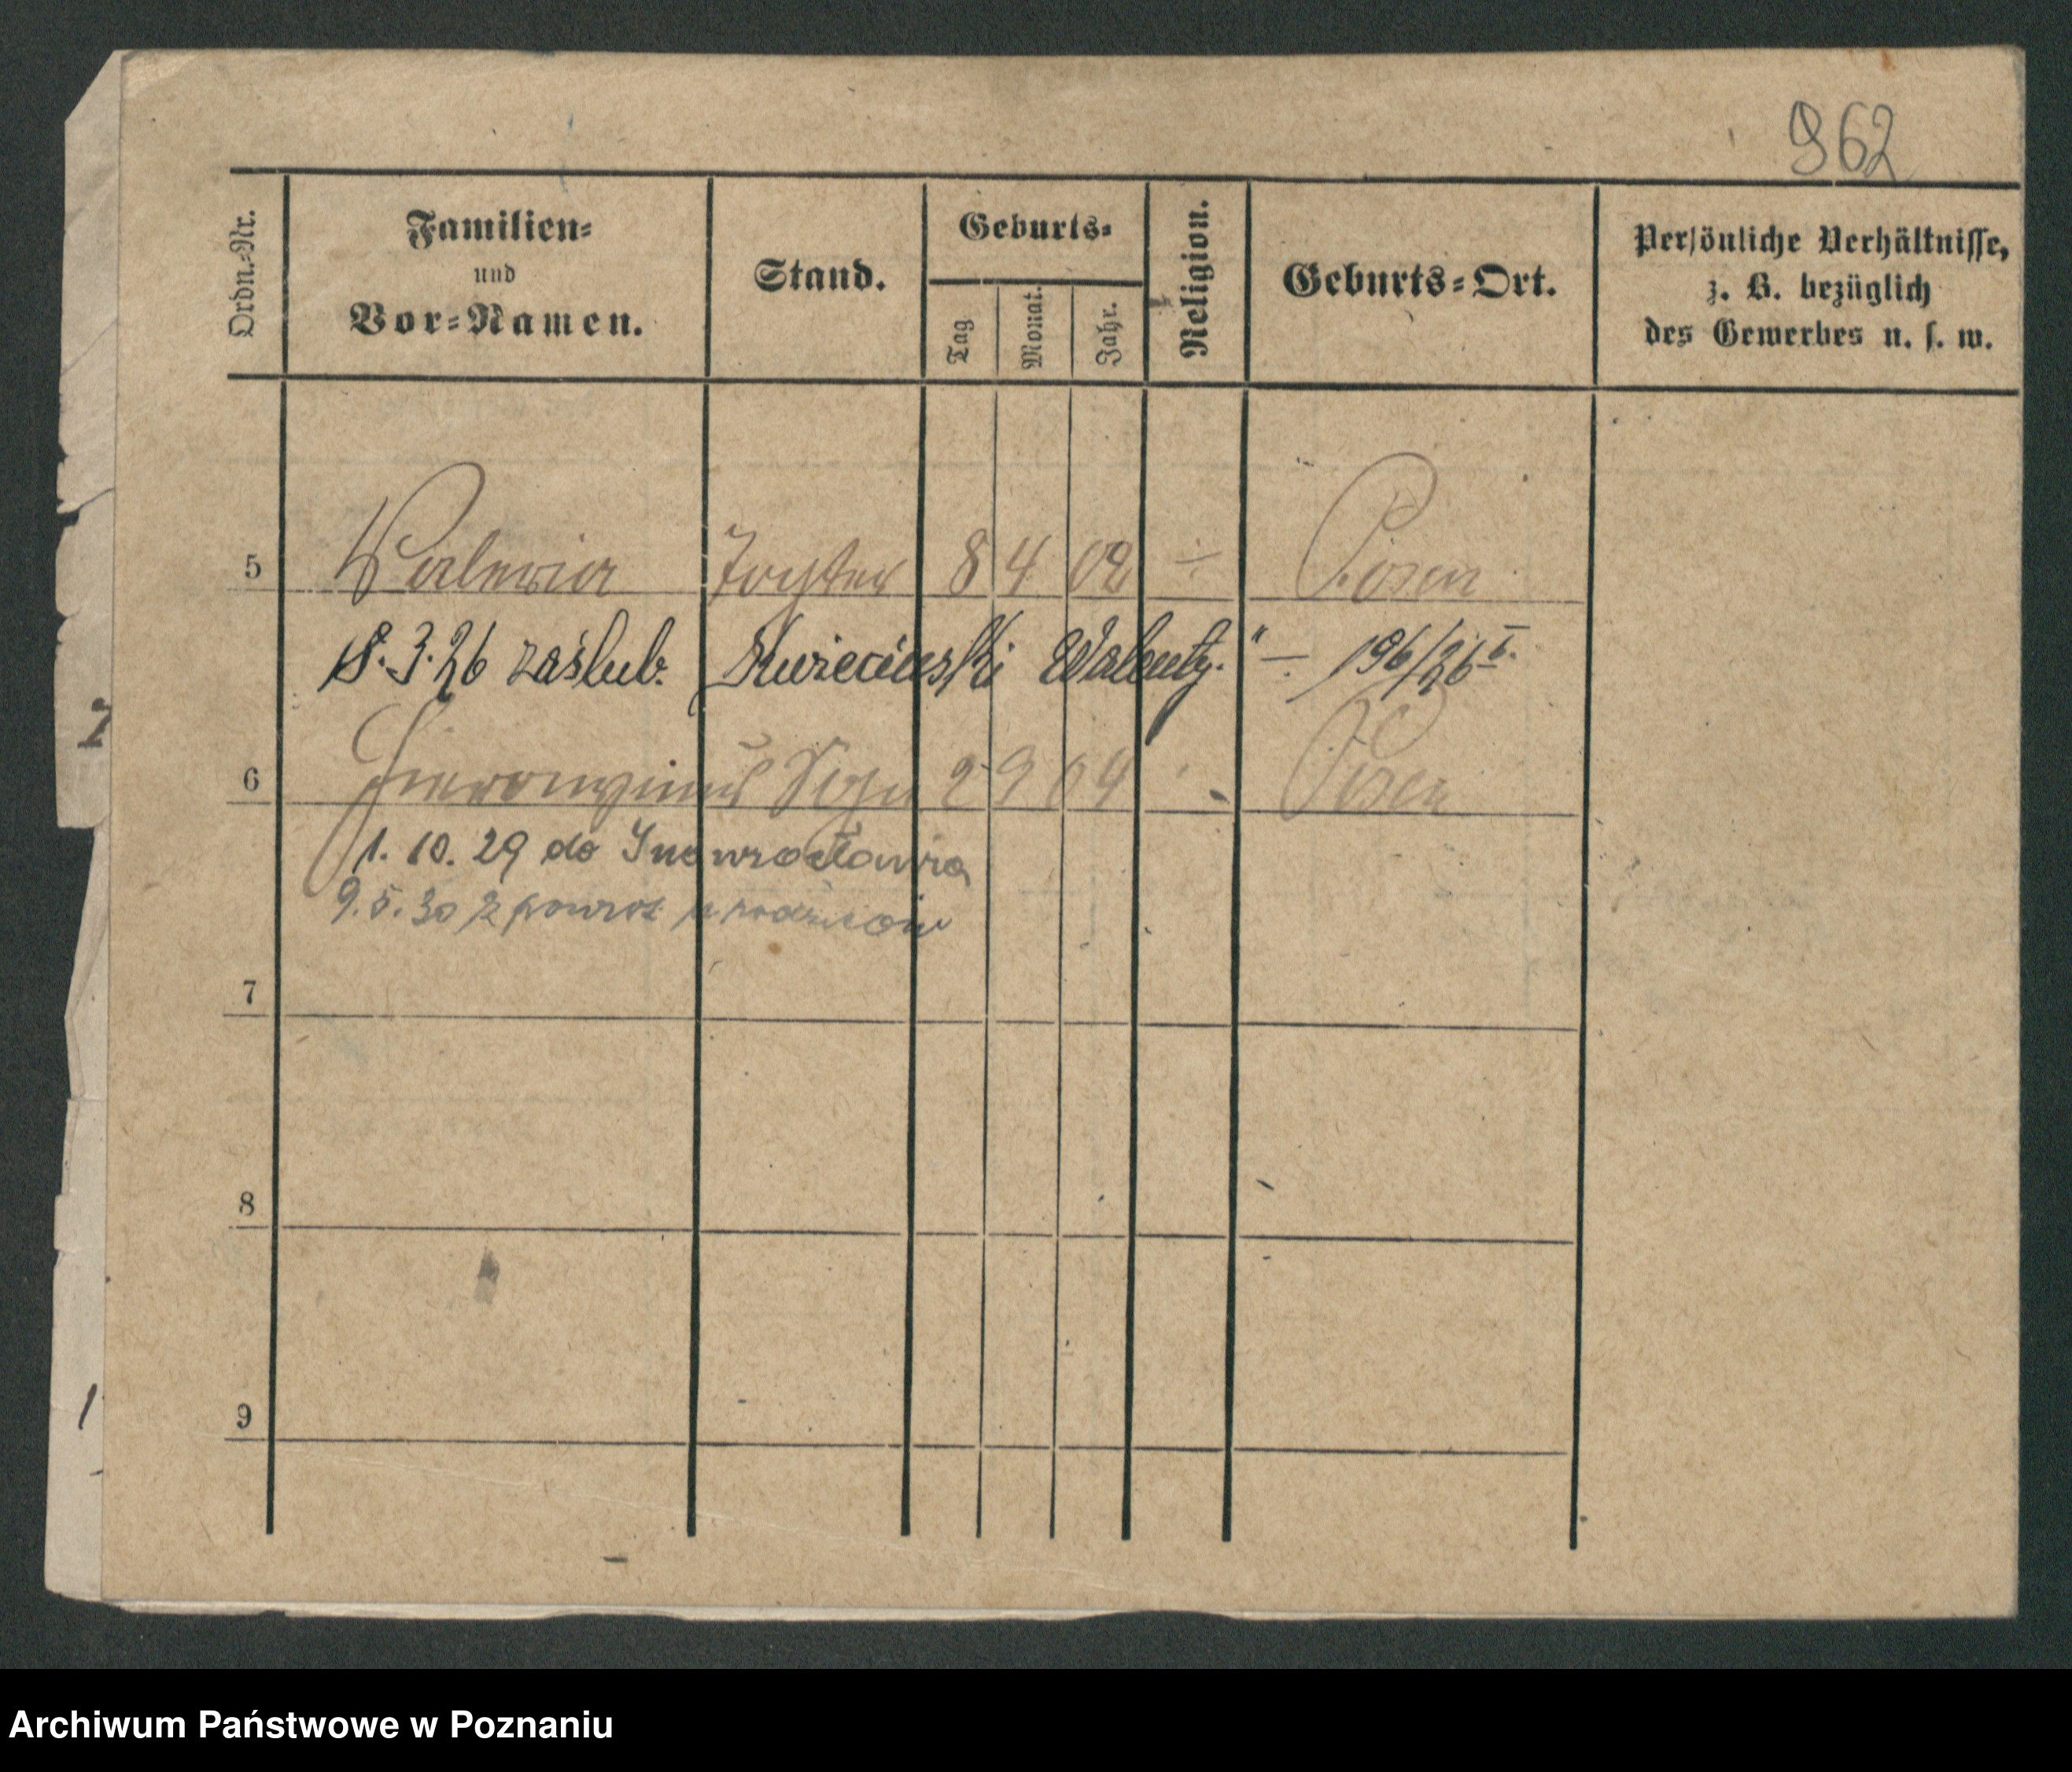 962
Ordn.-Nr.
Familien-
und
Vor-Namen.
Stand.
Geburts-
Tag
Monat.
Jahr.
Religion.
Geburts-Ort.
Persönliche Verhältnisse,
z. B. bezüglich
des Gewerbes u. s. w.
5 Waleria Tochter 8 4 02 Posen
8.3.26 zaślub. Walenty. 196/26 I.
6 Hieronymus Sohn 2 9 04 Posen
1. 10. 29 do Inowrocławia
9. 5. 30 z powrot. rodziców
7
8
9
Archiwum Państwowe w Poznaniu